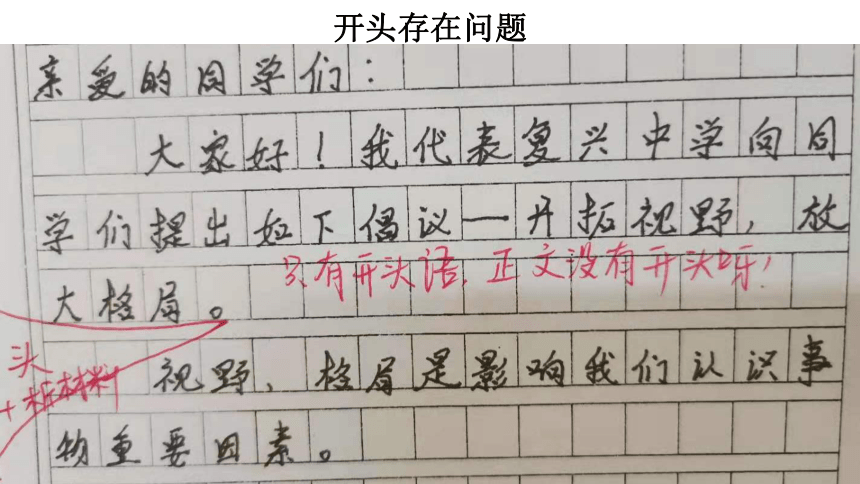 开头存在问题
亲爱的同学们：
大家好！我代表复兴中学向同
学们提出如下倡议一开拓视野，放
只有开头语，正文没有开头呀！
大格局。
头
+析材料
视野、格局是影响我们认识事
物重要因素。